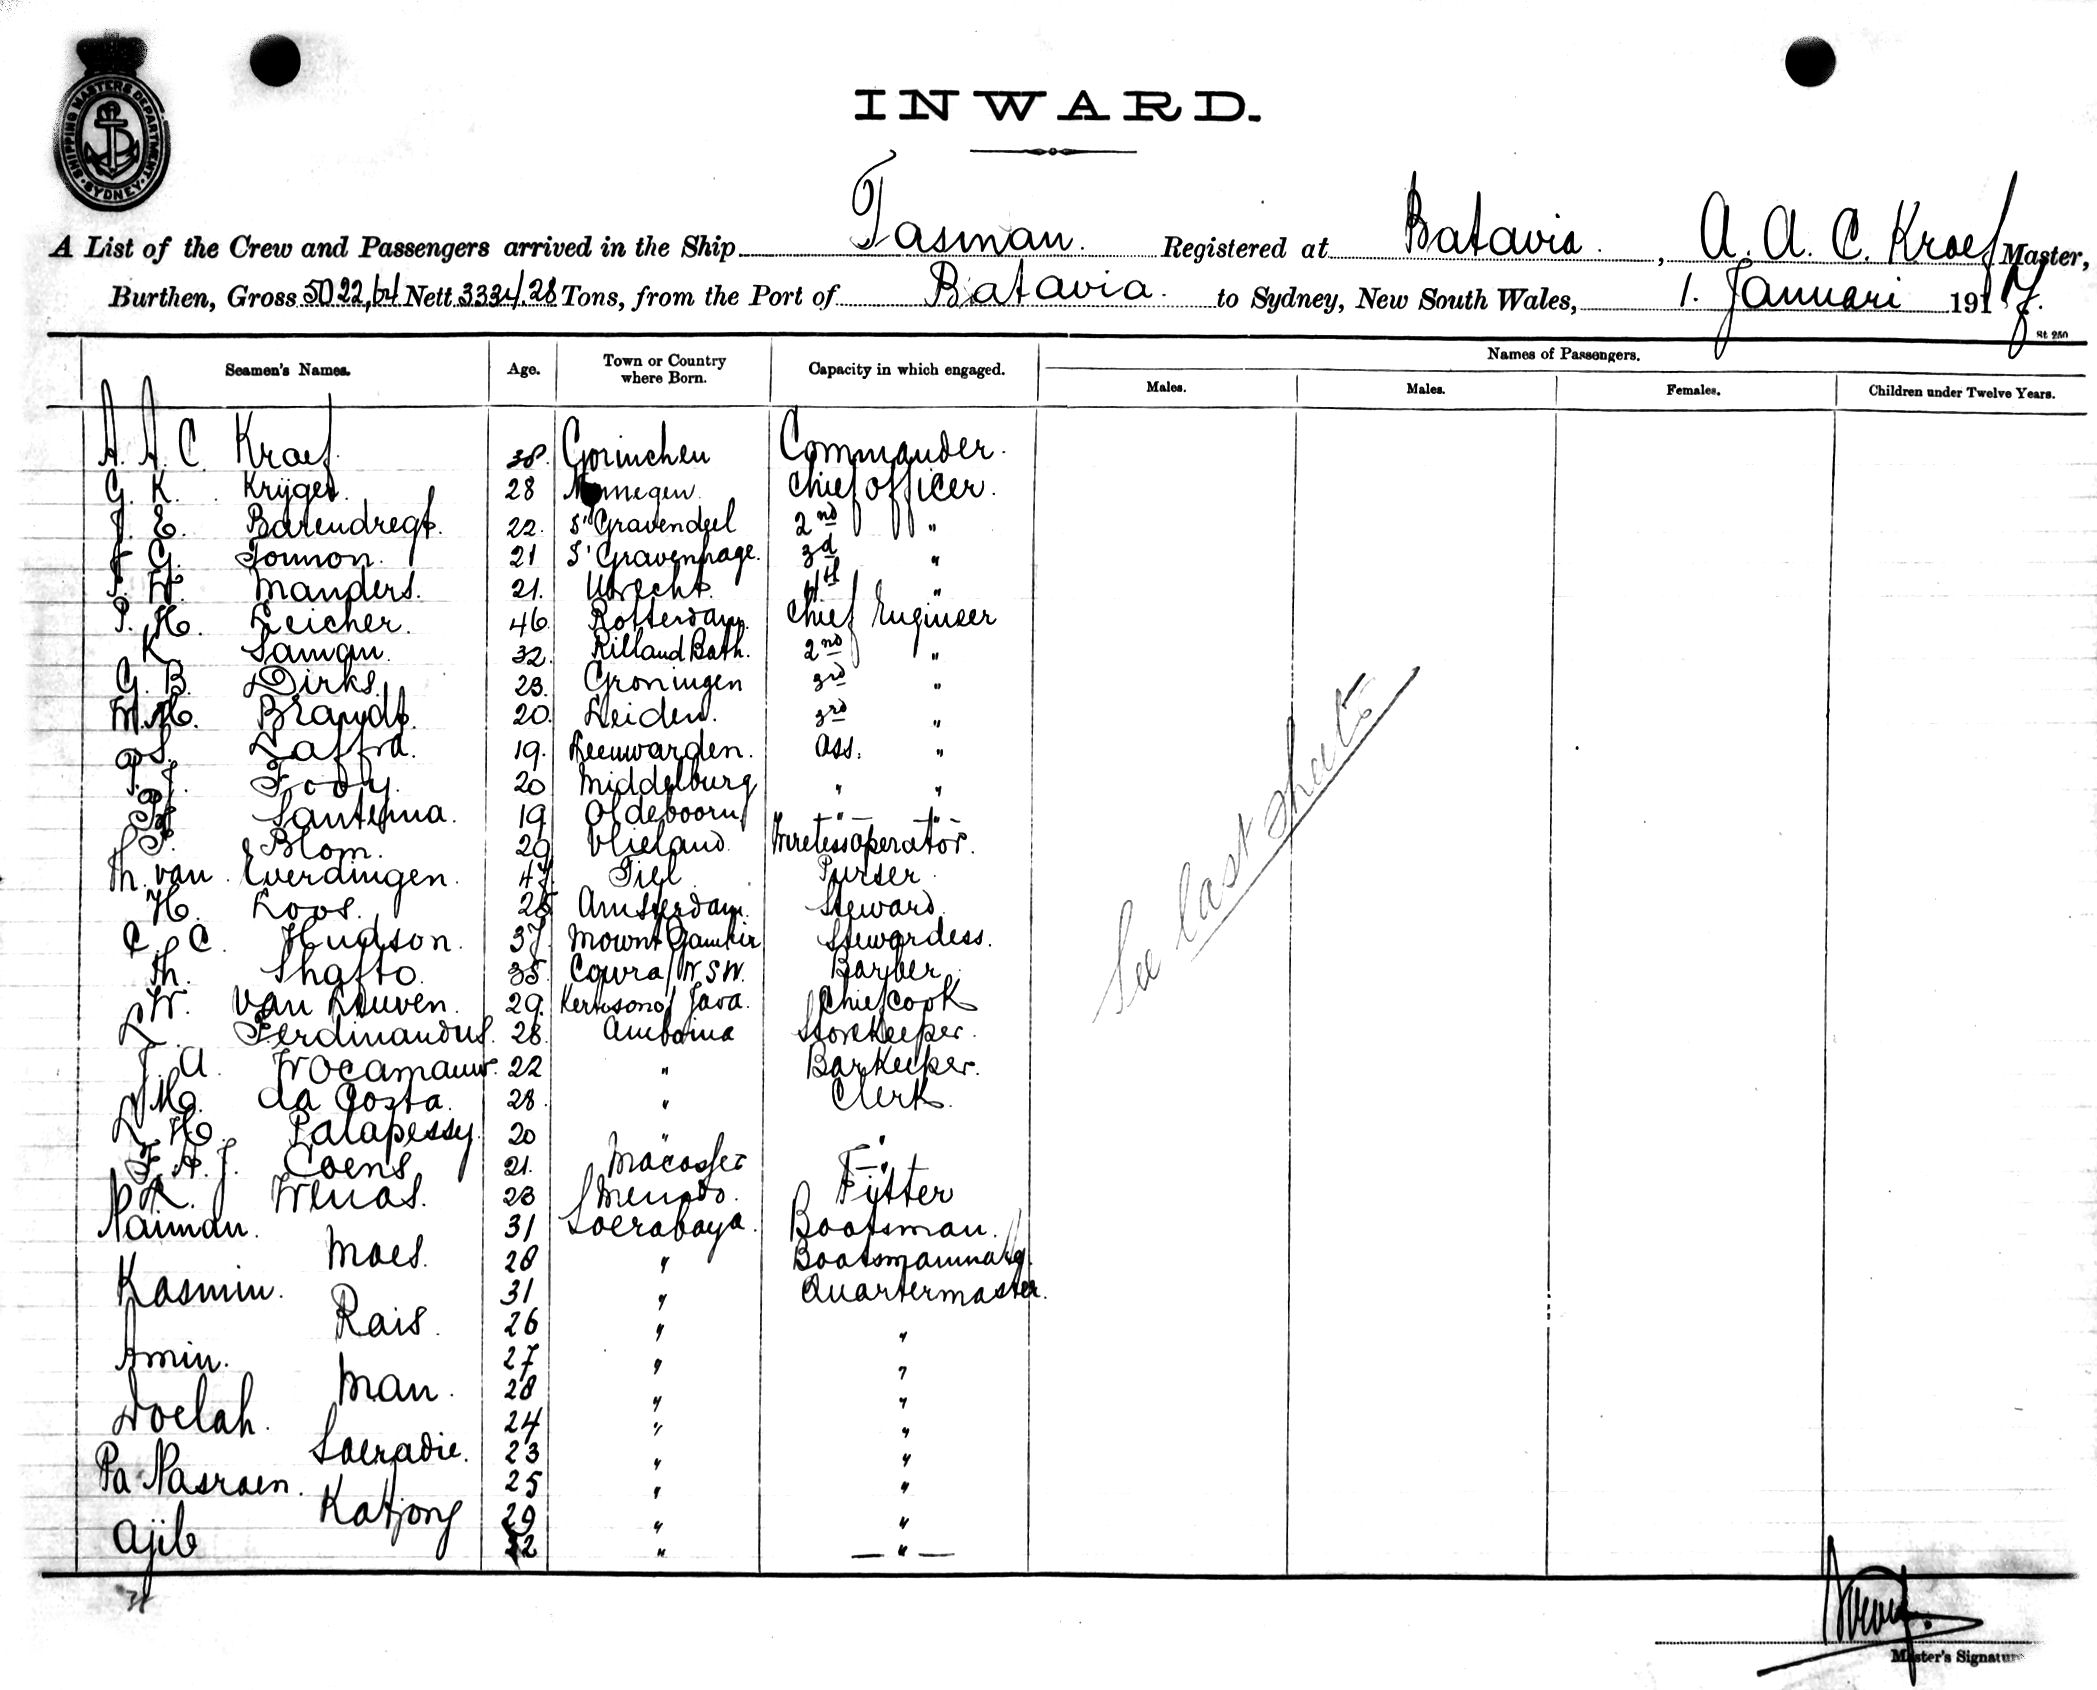 SHIPPING MASTERS DEPARTMENT
SYDNEY
INWARD.
A List of the Crew and Passengers arrived in the Ship Tasman. Registered at Batavia. , A. A. C. Kraef Master,
Burthen, Gross 5022,64 Nett 3334.28 Tons, from the Port of Batavia. to Sydney, New South Wales, 1. Januari 1917.
St 250
Seamen's Names. Age. Town or Country where Born. Capacity in which engaged. Names of Passengers.
Males. Males. Females. Children under Twelve Years.
A. A. C. Kraef. 38. Gorinchem Commander.
G. K. Kryger. 28 Chief officer.
J. E. Barendregt. 22. S'Gravendeel 2nd "
J. G. Tonnon. 21 S'Gravenhage. 3d "
Manders. 21. Utrecht. 4th "
P. H. Zeicher. 46. Rotterdam. Chief Engineer
K. Saman. 32. Rilland Bath. 2nd "
G. B. Dirks. 23. Groningen 3rd "
W. H. Brandt. 20. Leiden. 3rd "
Zaffra. 19. Leeuwarden. Ass. "
P. J. Fody. 20 Middelburg " "
Santema. 19 Oldeboorn " "
P. Blom. 29 Vlieland. Wirelessoperator.
Th. van Everdingen. 47 Tiel Purser.
H. Loos. 26 Amsterdam. Steward.
C. C. Hudson. 37 Mount Gambier Stewardess.
Th. Shafto. 35 Cowra/N.S.W. Barber.
W. van Leuven. 29. Kertosono/Java. Chiefcook
L. Ferdinandus. 28. Amboina Storekeeper.
J. A. Wocamauw. 22 " Barkeeper.
M. da Costa. 28 " Clerk.
L. H. Palapessy. 20 " "
F. A. J. Coens 21. Macasser "
R. Wenas. 23 Menado. Fitter
Naiman. 31 Soerabaya. Bootsman.
Moes. 28 "
Kasmin. 31 " Quartermaster.
Rais. 26 " "
Amin. 27 " "
Man. 28 " "
Doelah. 24 " "
Soeradie. 23 " "
Pa Nasraen. 25 " "
Katjong 29 " "
Ajib 32 " "
See last sheet
Master's Signature